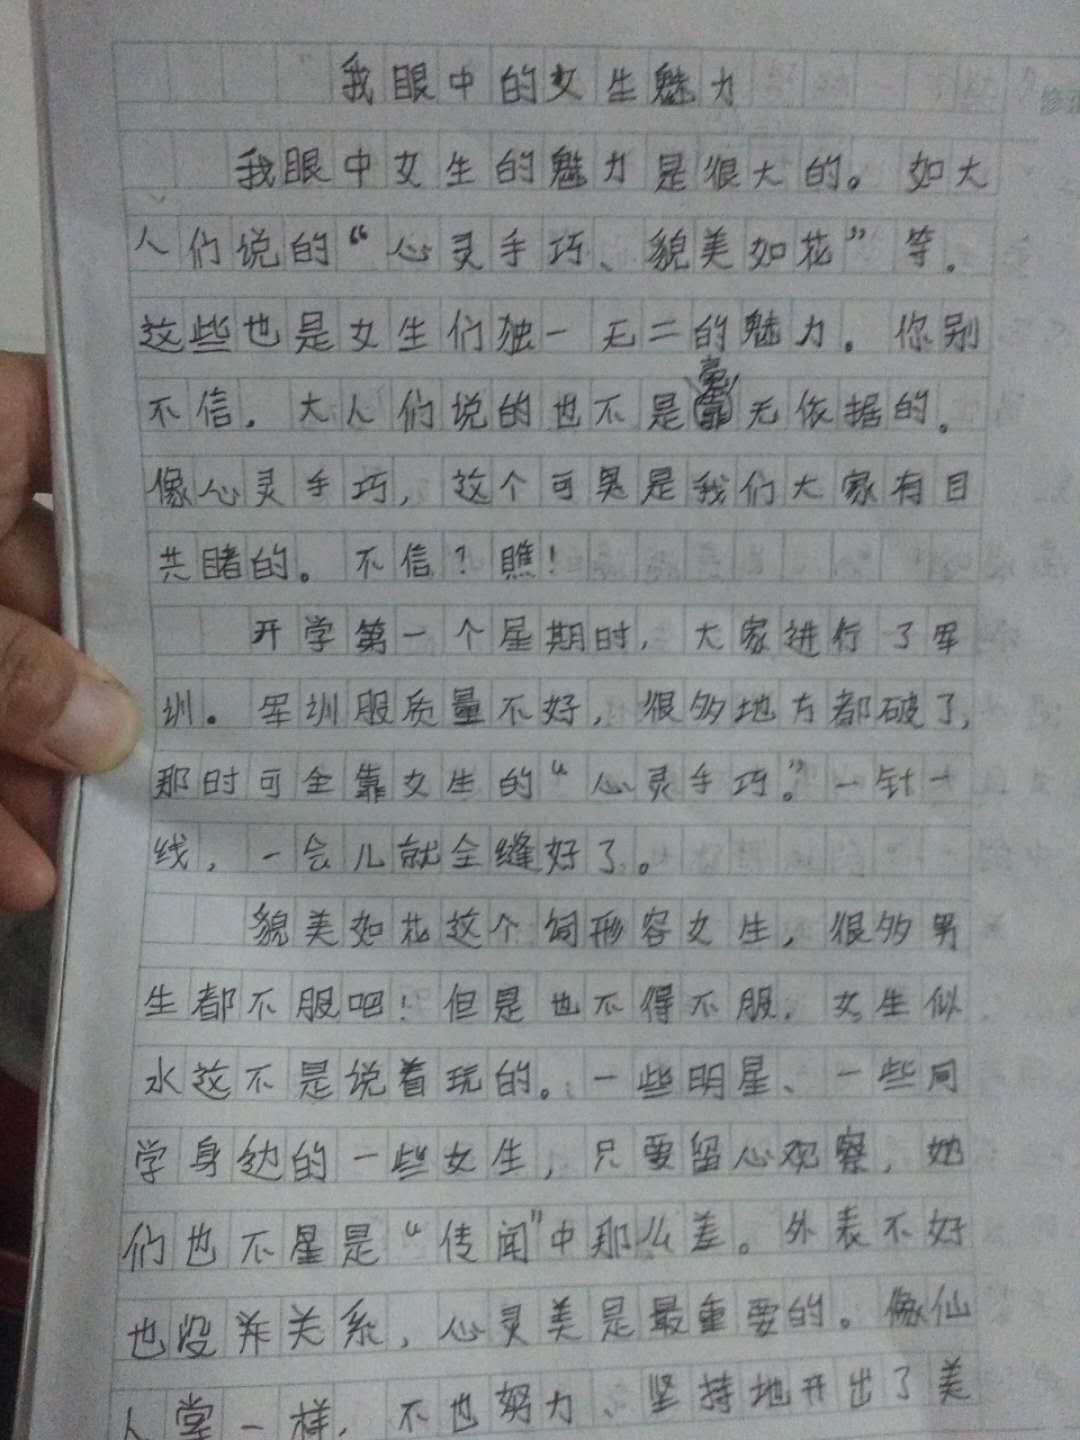 我眼中的女生魅力
我眼中女生的魅力是很大的。如大
人们说的“心灵手巧、貌美如花”等。
这些也是女生们独一无二的魅力。你别
不信。大人们说的也不是毫无依据的。
像心灵手巧，这个可是我们大家有目
共睹的。不信？瞧！
开学第一个星期时，大家进行了军
训。军训服质量不好，很多地方都破了，
那时可全靠女生的“心灵手巧”。一针一
线，一会儿就全缝好了。
貌美如花这个词形容女生，很多男
生都不服吧！但是也不得不服，女生似
水这不是说着玩的。一些明星、一些同
学身边的一些女生，只要留心观察，她
们也不星是“传闻”中那么差。外表不好
也没关系，心灵美是最重要的。像仙
人掌一样，不也努力、坚持地开出了美